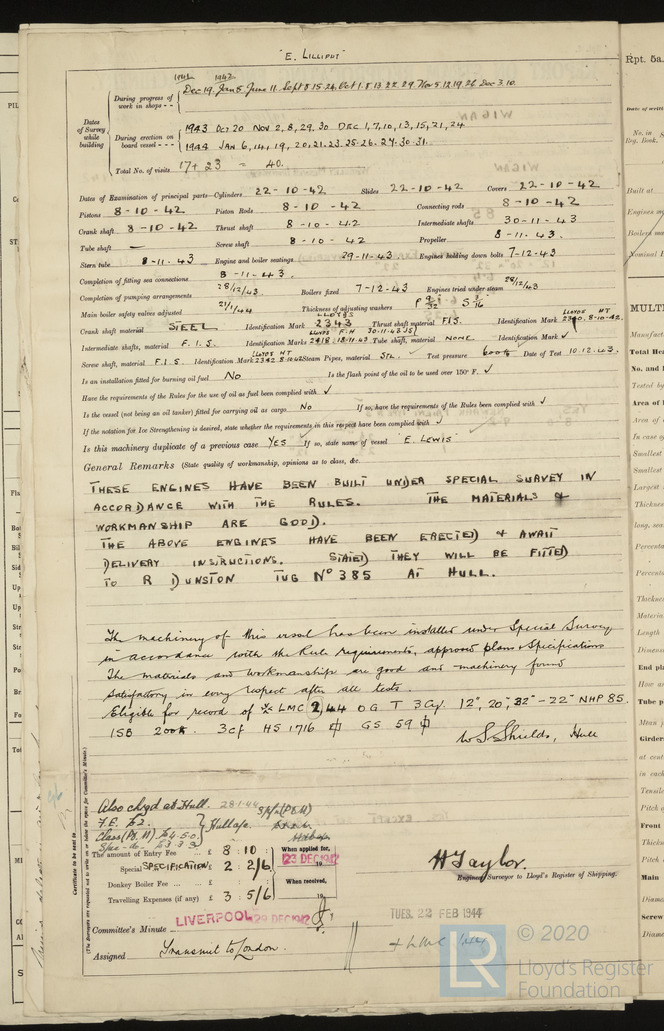 "E. LILLIPUT"
1941 1942
During progress of work in shops - - Dec 19. Jan 5 June 11. Sept 8 15 24. Oct 1. 8 13 22. 29. Nov 5 12 19. 26 Dec 3. 10.
Dates of Survey while building
During erection on board vessel - - - 1943 OCT 20 NOV 2, 8, 29, 30 DEC 1, 7, 10, 13, 15, 21, 24
1944 JAN 6, 14, 19, 20, 21. 23. 25. 26. 27. 30. 31.
Total No. of visits 17 + 23 = 40.
Dates of Examination of principal parts—Cylinders 22-10-42 Slides 22-10-42 Covers 22-10-42
Pistons 8-10-42 Piston Rods 8-10-42 Connecting rods 8-10-42
Crank shaft 8-10-42 Thrust shaft 8-10-42 Intermediate shafts 30-11-43
Tube shaft — Screw shaft 8-10-42 Propeller 8-11-43.
Stern tube 8-11-43 Engine and boiler seatings 29-11-43 Engines holding down bolts 7-12-43
Completion of fitting sea connections 8-11-43.
Completion of pumping arrangements 28/12/43. Boilers fixed 7-12-43 Engines tried under steam 28/12/43
Main boiler safety valves adjusted 21/1/44 Thickness of adjusting washers
Crank shaft material STEEL Identification Mark LLOYDS 2343 Thrust shaft material F.I.S. Identification Mark LLOYDS HT 2340. 8-10-42.
Intermediate shafts, material F.I.S. Identification Marks 2418 - 18-11-43 Tube shaft, material NONE Identification Mark ✓
Screw shaft, material F.I.S. Identification Mark LLOYDS HT 2342 8-10-42 Steam Pipes, material STL. Test pressure 600 lb Date of Test 10.12.43.
Is an installation fitted for burning oil fuel No Is the flash point of the oil to be used over 150° F. ✓
Have the requirements of the Rules for the use of oil as fuel been complied with ✓
Is the vessel (not being an oil tanker) fitted for carrying oil as cargo No If so, have the requirements of the Rules been complied with ✓
If the notation for Ice Strengthening is desired, state whether the requirements in this respect have been complied with ✓
Is this machinery duplicate of a previous case YES If so, state name of vessel "E. LEWIS"
General Remarks (State quality of workmanship, opinions as to class, &c.
THESE ENGINES HAVE BEEN BUILT UNDER SPECIAL SURVEY IN
ACCORDANCE WITH THE RULES. THE MATERIALS &
WORKMANSHIP ARE GOOD.
THE ABOVE ENGINES HAVE BEEN ERECTED & AWAIT
DELIVERY INSTRUCTIONS. STATED THEY WILL BE FITTED
TO R DUNSTON TUG No 385 AT HULL.
The machinery of this vessel has been installed under Special Survey
in accordance with the Rule requirements, approved plans & Specifications
The materials and workmanship are good and machinery found
satisfactory in every respect after all tests.
Eligible for record of LMC 2,44 O G. T 3 Cy. 12", 20", 32" - 22" NHP 85.
1SB 200 lb. 3cf HS 1716 GS 59
W S Shields, Hull
Also chgd at Hull. 28-1-44
F.E. £2.
Class (Pt. M) £4-5-0. Hull a/c
Spec - do - £3-3-3
The amount of Entry Fee .. £ 8 : 10 :
When applied for, 23 DEC 1942
Special SPECIFICATION £ 2 : 2/6
Donkey Boiler Fee ... £ : :
When received,
Travelling Expenses (if any) £ 3 : 5/6 19
H Taylor.
Engineer Surveyor to Lloyd's Register of Shipping.
LIVERPOOL 29 DEC 1942
TUES. 22 FEB 1944
Committee's Minute
+ LMC 1.44
Assigned Transmit to London.
Certificate to be sent to
(The Surveyors are requested not to write on or below the space for Committee's Minute.)
Rpt. 5a.
MULTI
© 2020
LR
Lloyd's Register
Foundation